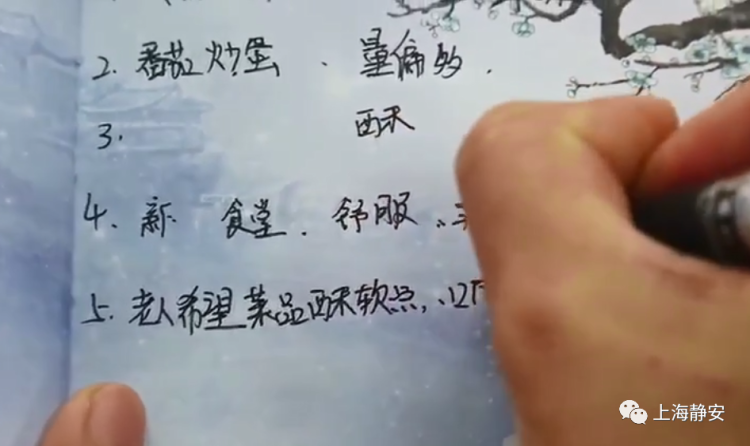 2. 番茄炒蛋 . 量偏多.
3. 酥
4. 新 食堂. 舒服
5. 老人希望菜品酥软点,
上海静安